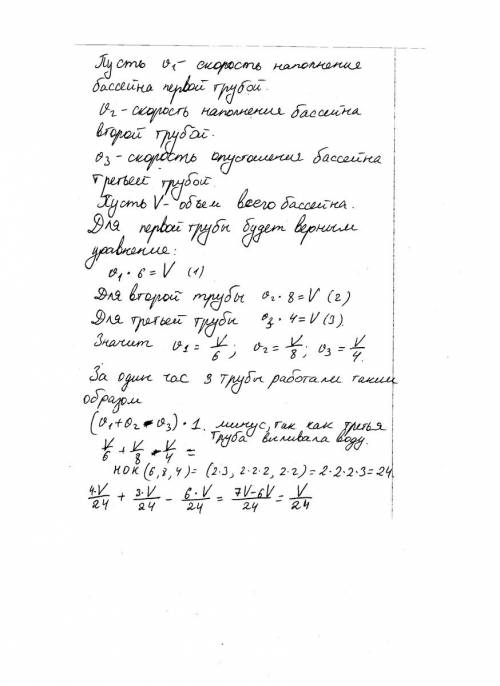 Пусть v1 - скорость наполнения
бассейна первой трубой.
v2 - скорость наполнения бассейна
второй трубой.
v3 - скорость опустошения бассейна
третьей трубой.
Пусть V - объем всего бассейна.
Для первой трубы будет верным
уравнение:
v1 · 6 = V (1)
Для второй трубы v2 · 8 = V (2)
Для третьей трубы v3 · 4 = V (3).
Значит v1 = V/6; v2 = V/8; v3 = V/4.
За один час 3 трубы работали таким
образом
(v1 + v2 - v3) · 1. минус, так как третья
труба выливала воду.
V/6 + V/8 - V/4 =
НОК (6, 8, 4) = (2·3, 2·2·2, 2·2) = 2·2·2·3 = 24
4·V/24 + 3·V/24 - 6·V/24 = 7V-6V/24 = V/24